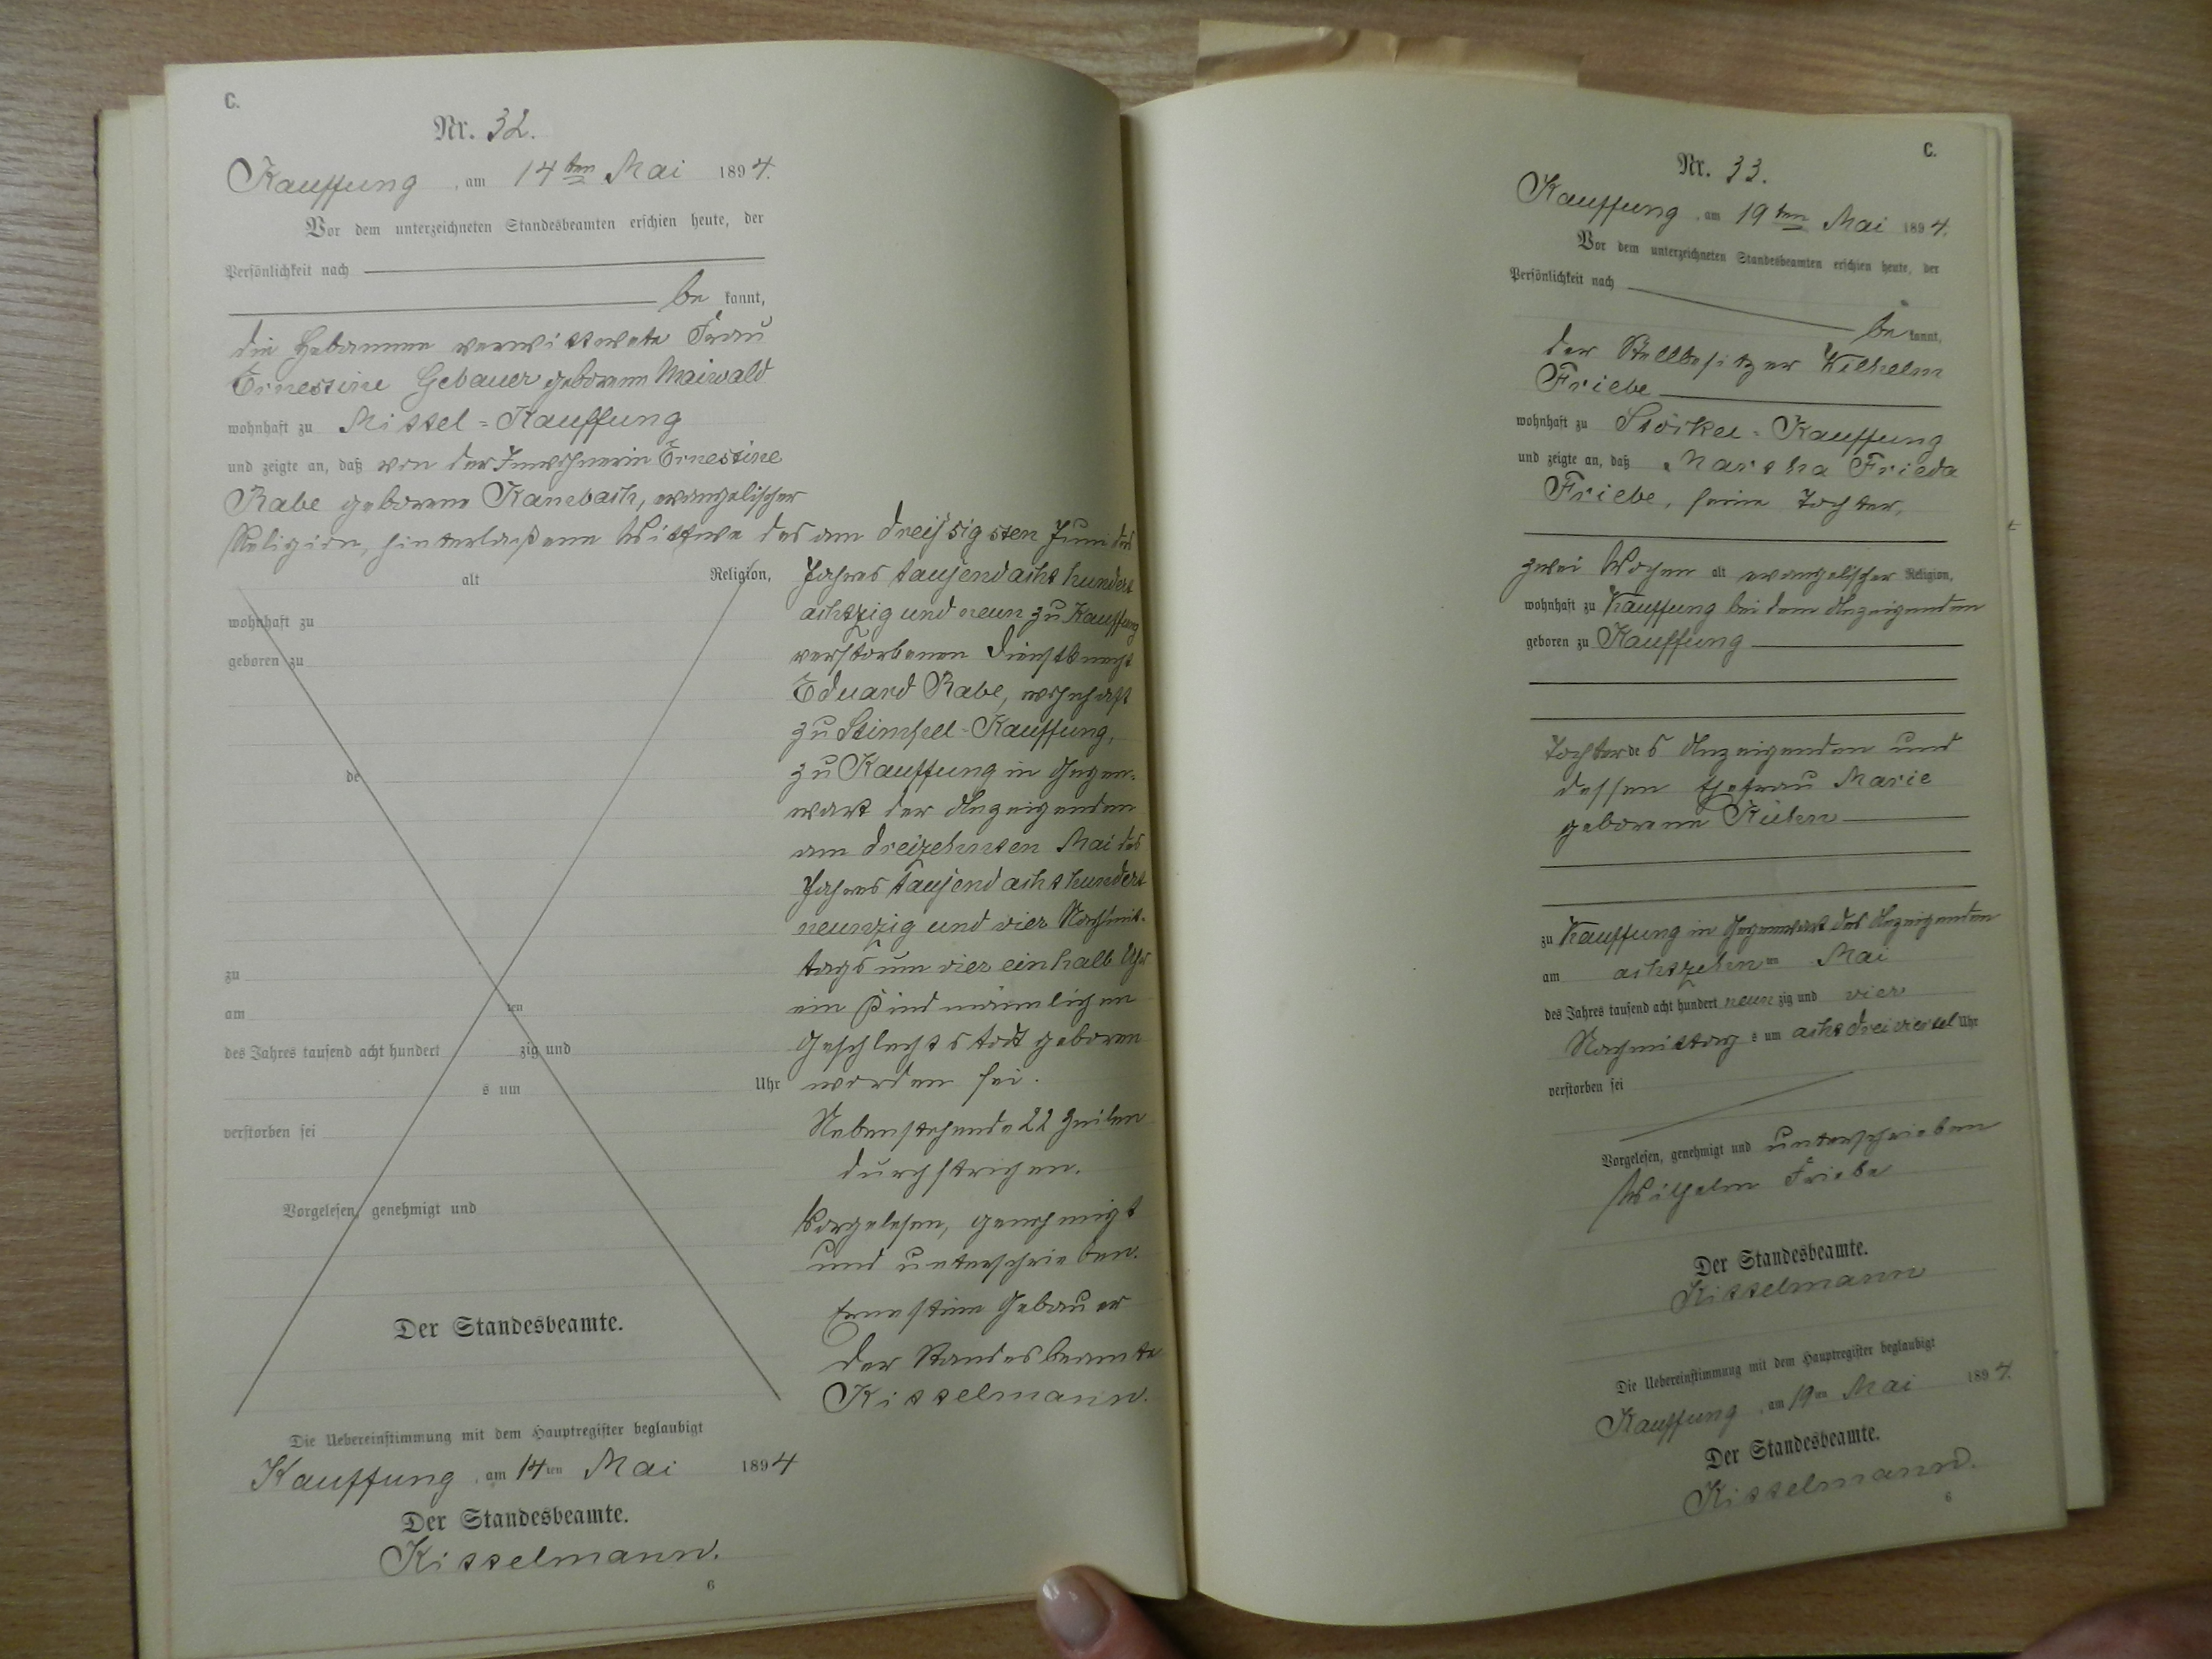 C.
Nr. 32.
Kauffung, am 14ten Mai 1894.
Vor dem unterzeichneten Standesbeamten erschien heute, der
Persönlichkeit nach
be kannt,
die Hebamme verwittwete Frau
Ernestine Gebauer geborene Maiwald
wohnhaft zu Mittel=Kauffung
und zeigte an, daß von der Inwohnerin Ernestine
Rabe geborene, evangelischer
Religion, hinterlaßene Wittwe des am dreißigsten Juni des
alt Religion,
wohnhaft zu
geboren zu
de
zu
am ten
des Jahres tausend acht hundert zig und
s um Uhr
verstorben sei
Vorgelesen, genehmigt und
Der Standesbeamte.
Jahres tausend acht hundert
achtzig und neun zu Kauffung
verstorbenen Dienstknecht
Eduard Rabe, wohnhaft
zu Kauffung,
zu Kauffung in Gegen=
wart der Anzeigenden
am dreizehnten Mai des
Jahres tausend acht hundert
neunzig und vier Nachmit=
tags um vier einhalb Uhr
ein Kind männlichen
Geschlechts todt geboren
worden sei.
Nebenstehende 22 Zeilen
durchstrichen.
Vorgelesen, genehmigt
und unterschrieben.
Ernestine Gebauer
Der Standesbeamte
Kittelmann.
Die Uebereinstimmung mit dem Hauptregister beglaubigt
Kauffung, am 14ten Mai 1894
Der Standesbeamte.
Kittelmann.
6
C.
Nr. 33.
Kauffung, am 19ten Mai 1894.
Vor dem unterzeichneten Standesbeamten erschien heute, der
Persönlichkeit nach
be kannt,
der Stellbesitzer Wilhelm
Friebe
wohnhaft zu Stöckel=Kauffung
und zeigte an, daß Martha Frieda
Friebe, seine Tochter,
zwei Wochen alt evangelischer Religion,
wohnhaft zu Kauffung bei dem Anzeigenden
geboren zu Kauffung
Tochter des Anzeigenden und
dessen Ehefrau Marie
geborene Kühn
zu Kauffung in Gegenwart des Anzeigenden
am achtzehn ten Mai
des Jahres tausend acht hundert neun zig und vier
Nachmittag s um acht dreiviertel Uhr
verstorben sei
Vorgelesen, genehmigt und unterschrieben
Wilhelm Friebe
Der Standesbeamte.
Kittelmann
Die Uebereinstimmung mit dem Hauptregister beglaubigt
Kauffung, am 19ten Mai 1894.
Der Standesbeamte.
Kittelmann.
6